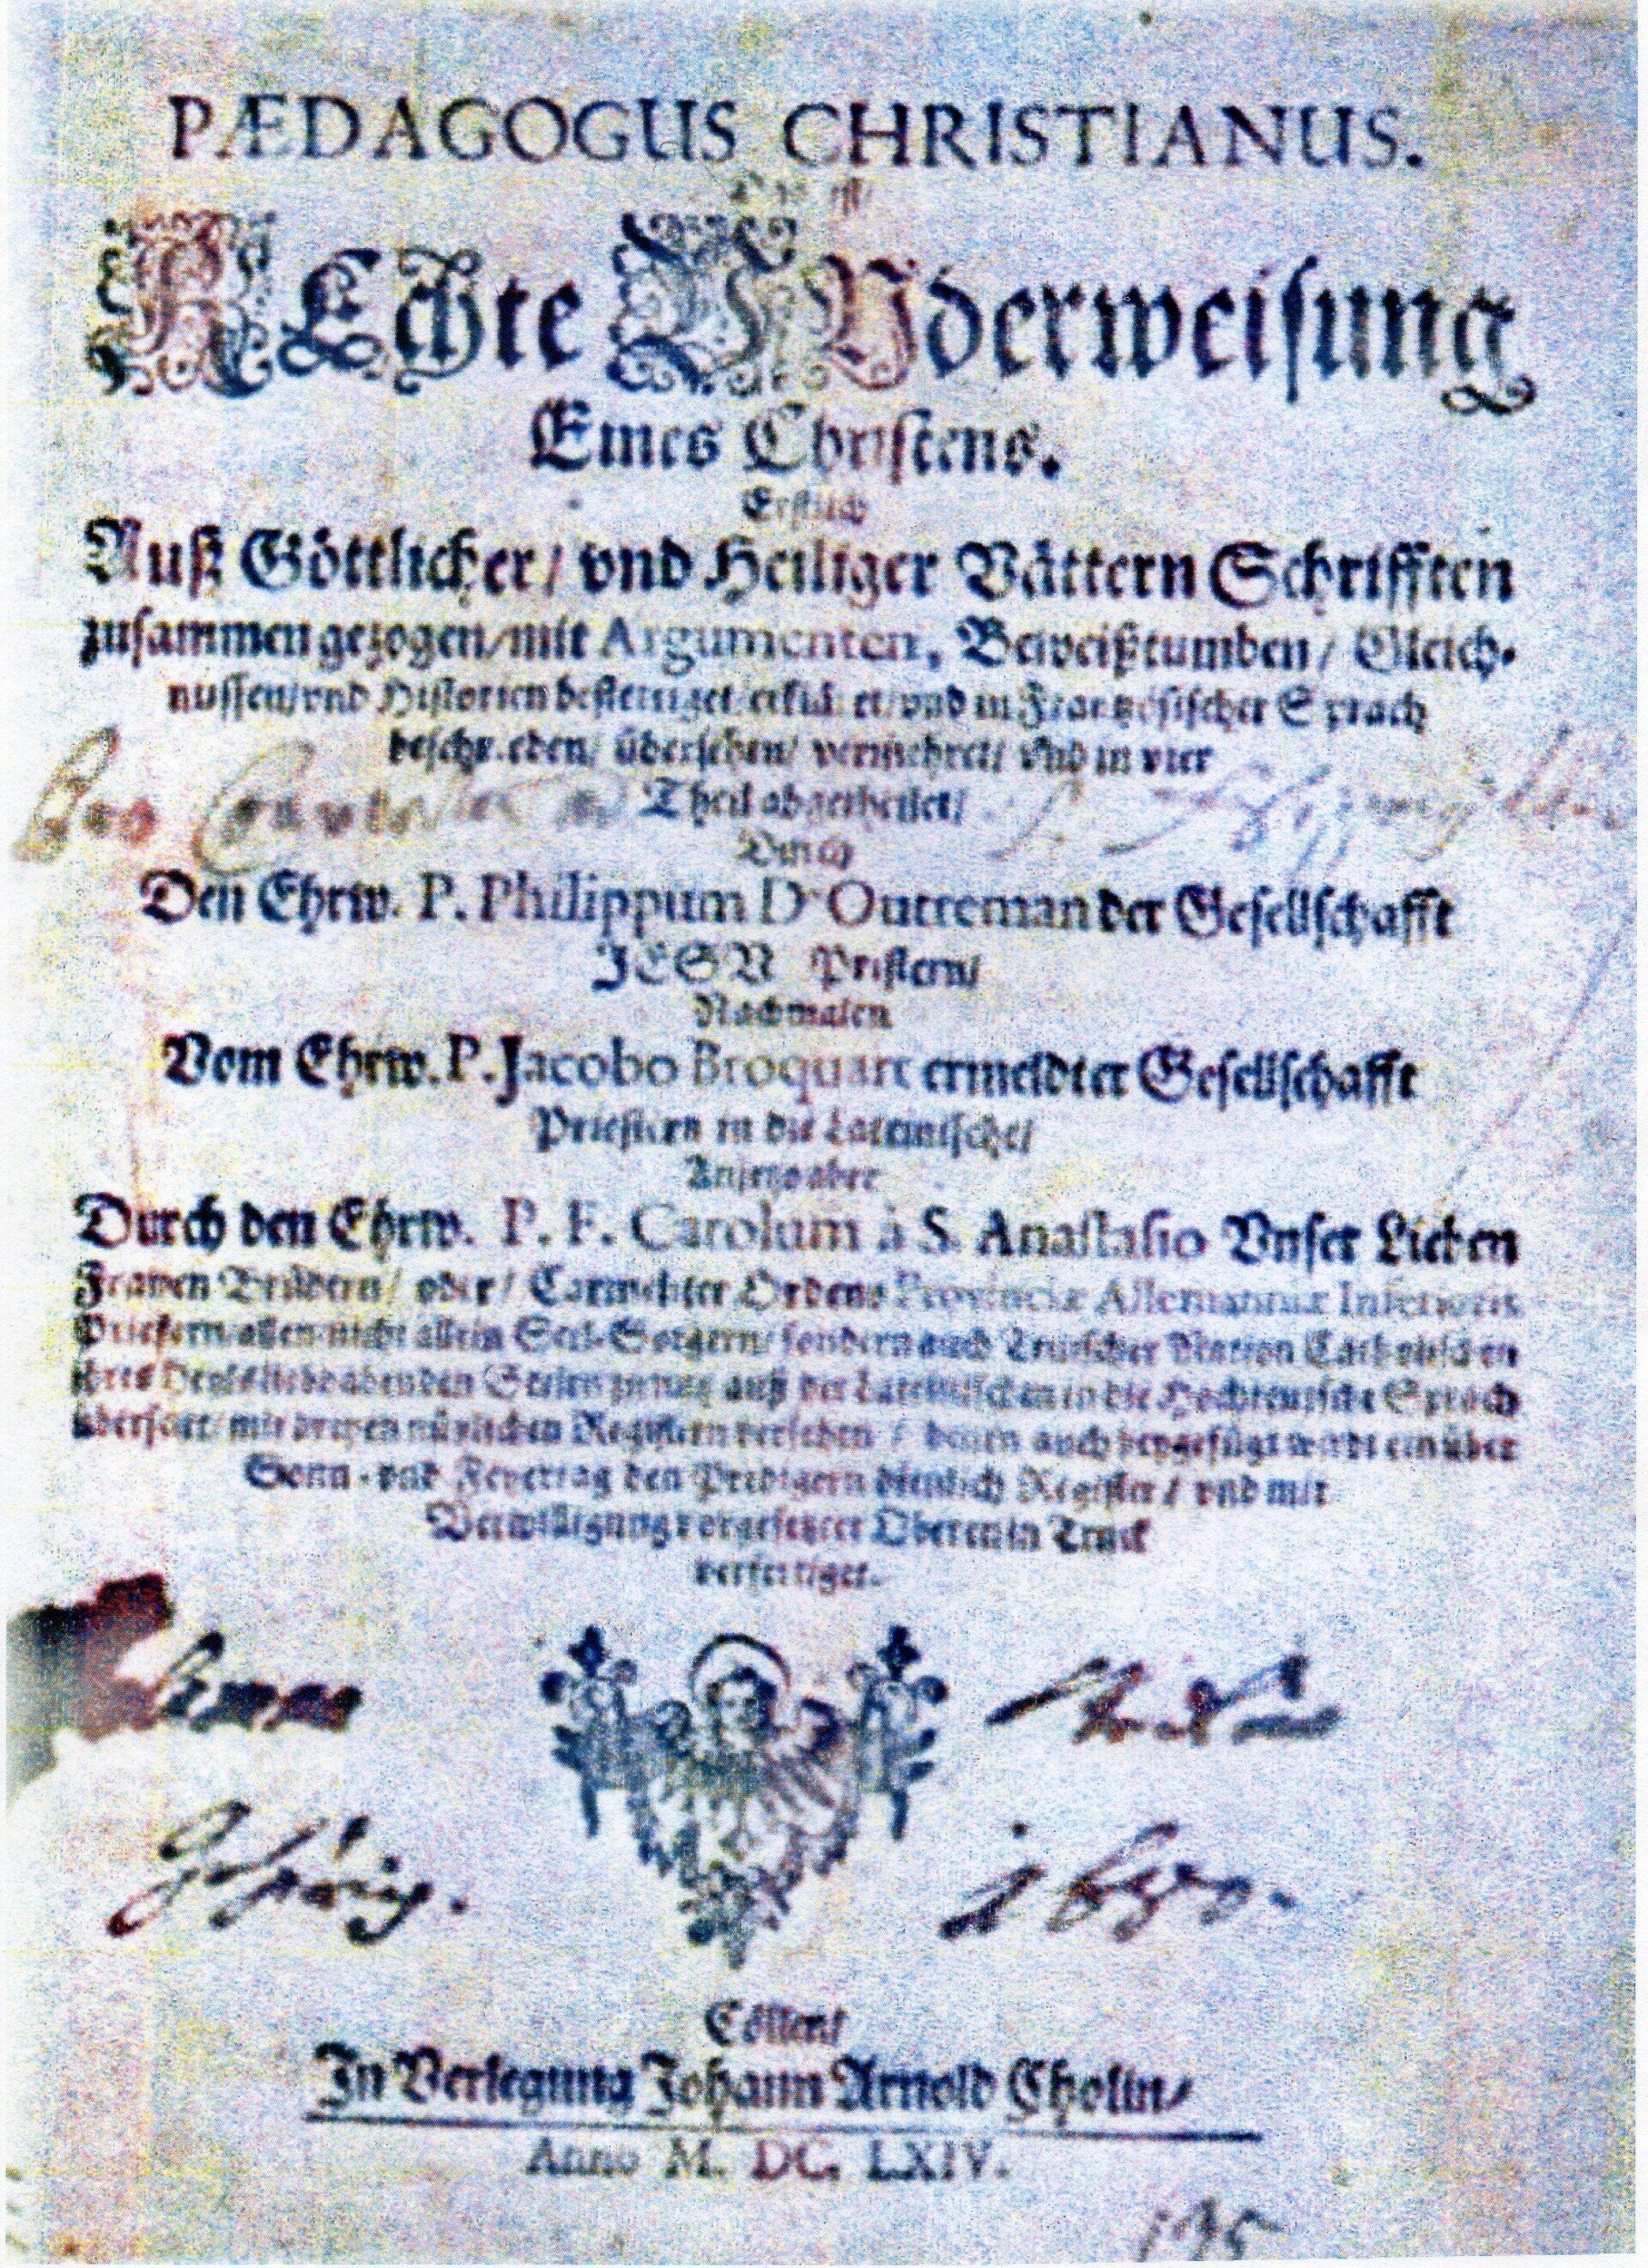 PÆDAGOGUS CHRISTIANUS.
Das ist/
REchte VNderweisung
Eines Christens.
Erstlich
Auß Göttlicher / vnd Heiliger Vättern Schrifften
zusammen gezogen/mit Argumenten, Beweißtumben / Gleich-
nussen/vnd Historien bestettiget/erkläret/vnd in Frantzösischer Sprach
beschrieben/ übersehen/ vermehret/ vnd in vier
Theil abgetheilet/
Durch
Den Ehrw. P. Philippum D'Outreman der Gesellschafft
JESV Pristern/
Nachmalen
Vom Ehrw. P. Jacobo Broquart ermeldter Gesellschafft
Priestern in die Lateinische/
Anjetzo aber
Durch den Ehrw. P. F. Carolum à S. Anastasio Vnser Lieben
Frawen Brüdern/ oder/ Carmeliter Ordens Provinciæ Allemanniæ Inferioris
Priestern allen nicht allein Seel-Sorgern/ sondern auch Teutscher Nation Catholischen
ihres Heyls liebhabenden Seelen zu nutz auß der Lateinischen in die Hochteutsche Sprach
übersetzt/ mit dreyen nützlichen Registern versehen / denen auch beygefügt wird ein über
Sonn- vnd Feyertag den Predigern dienlich Register / vnd mit
Verwilligung vorgesetzter Obern in Truck
verfertiget.
Cöllen/
In Verlegung Johann Arnold Cholin/
Anno M. DC. LXIV.